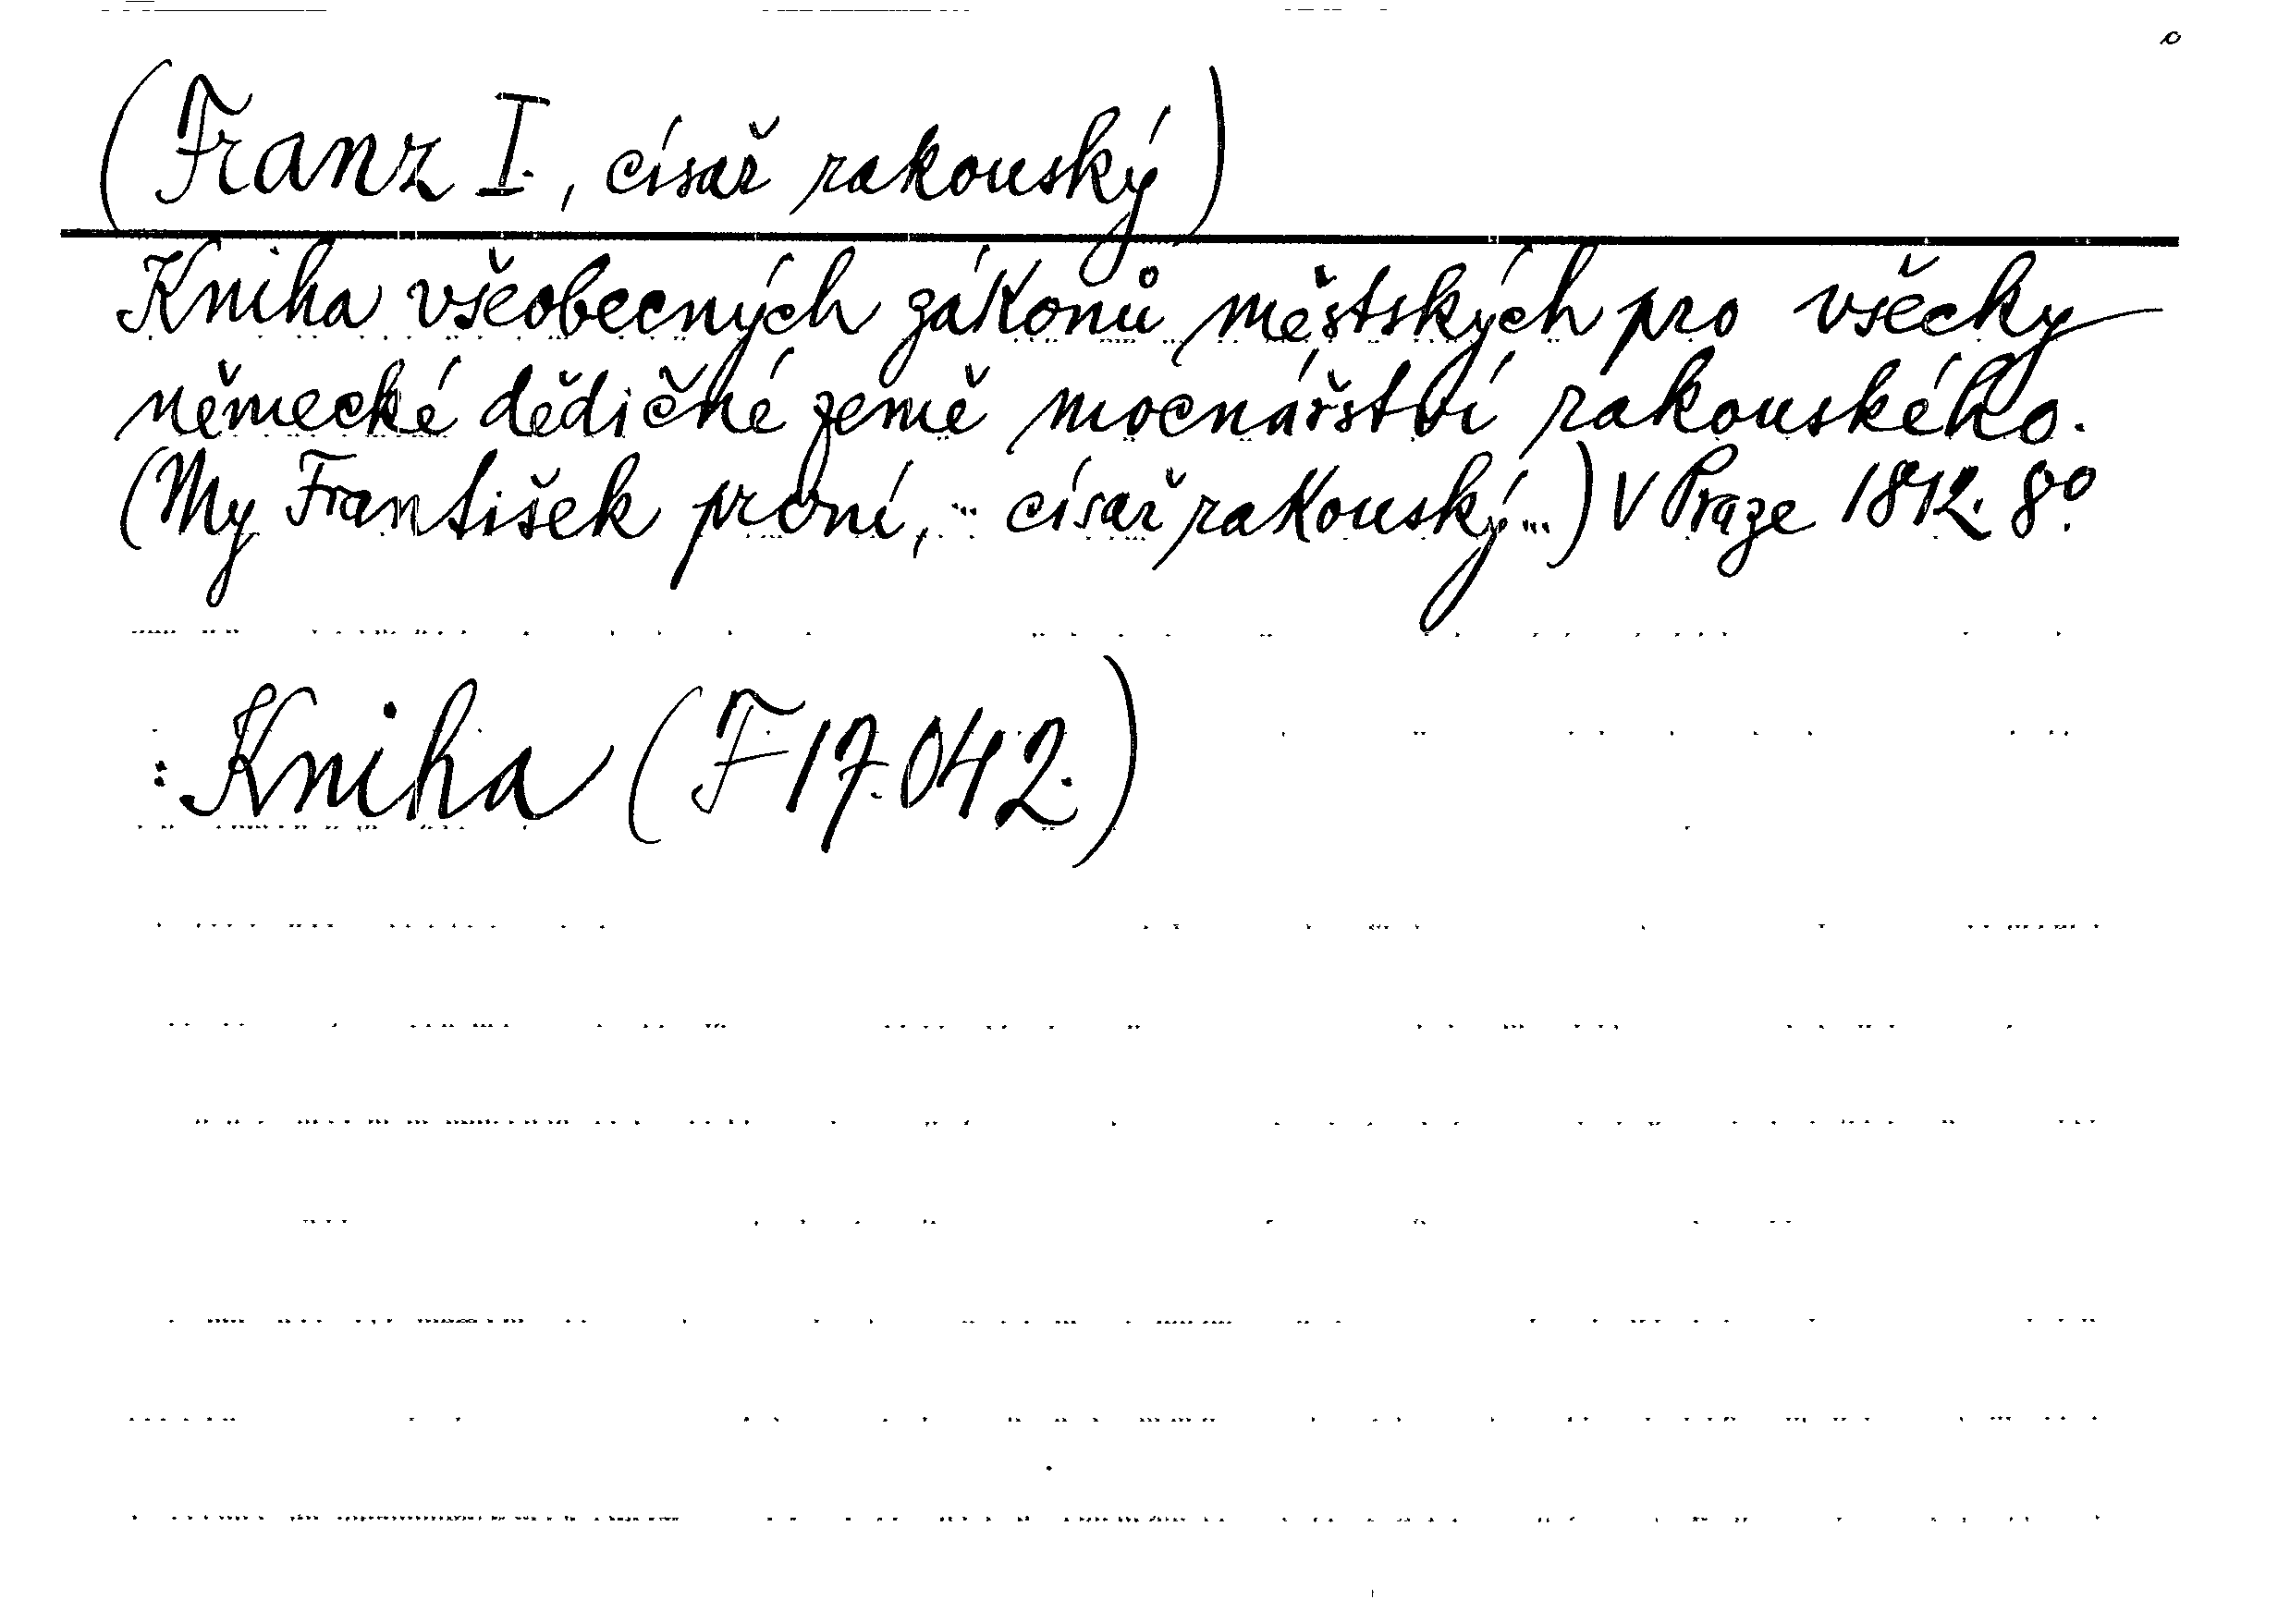 (Franz I., císař rakouský)
Kniha všeobecných zákonů městských pro všecky
německé dědičné země mocnářství rakouského.
(My František první, ... císař rakouský...) V Praze 1812. 8º.
: Kniha (F 17.042.)